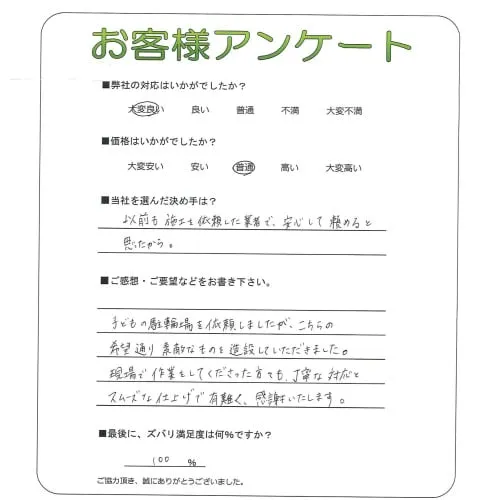 お客様アンケート
■弊社の対応はいかがでしたか？
大変良い 良い 普通 不満 大変不満
■価格はいかがでしたか？
大変安い 安い 普通 高い 大変高い
■当社を選んだ決め手は？
以前も施工を依頼した業者で、安心して頼めると
思ったから。
■ご感想・ご要望などをお書き下さい。
子どもの駐輪場を依頼しましたが、こちらの
希望通り素敵なものを造設していただきました。
現場で作業をしてくださった方ても、丁寧な対応と
スムーズな仕上げで有難く、感謝いたします。
■最後に、ズバリ満足度は何%ですか？
100 %
ご協力頂き、誠にありがとうございました。